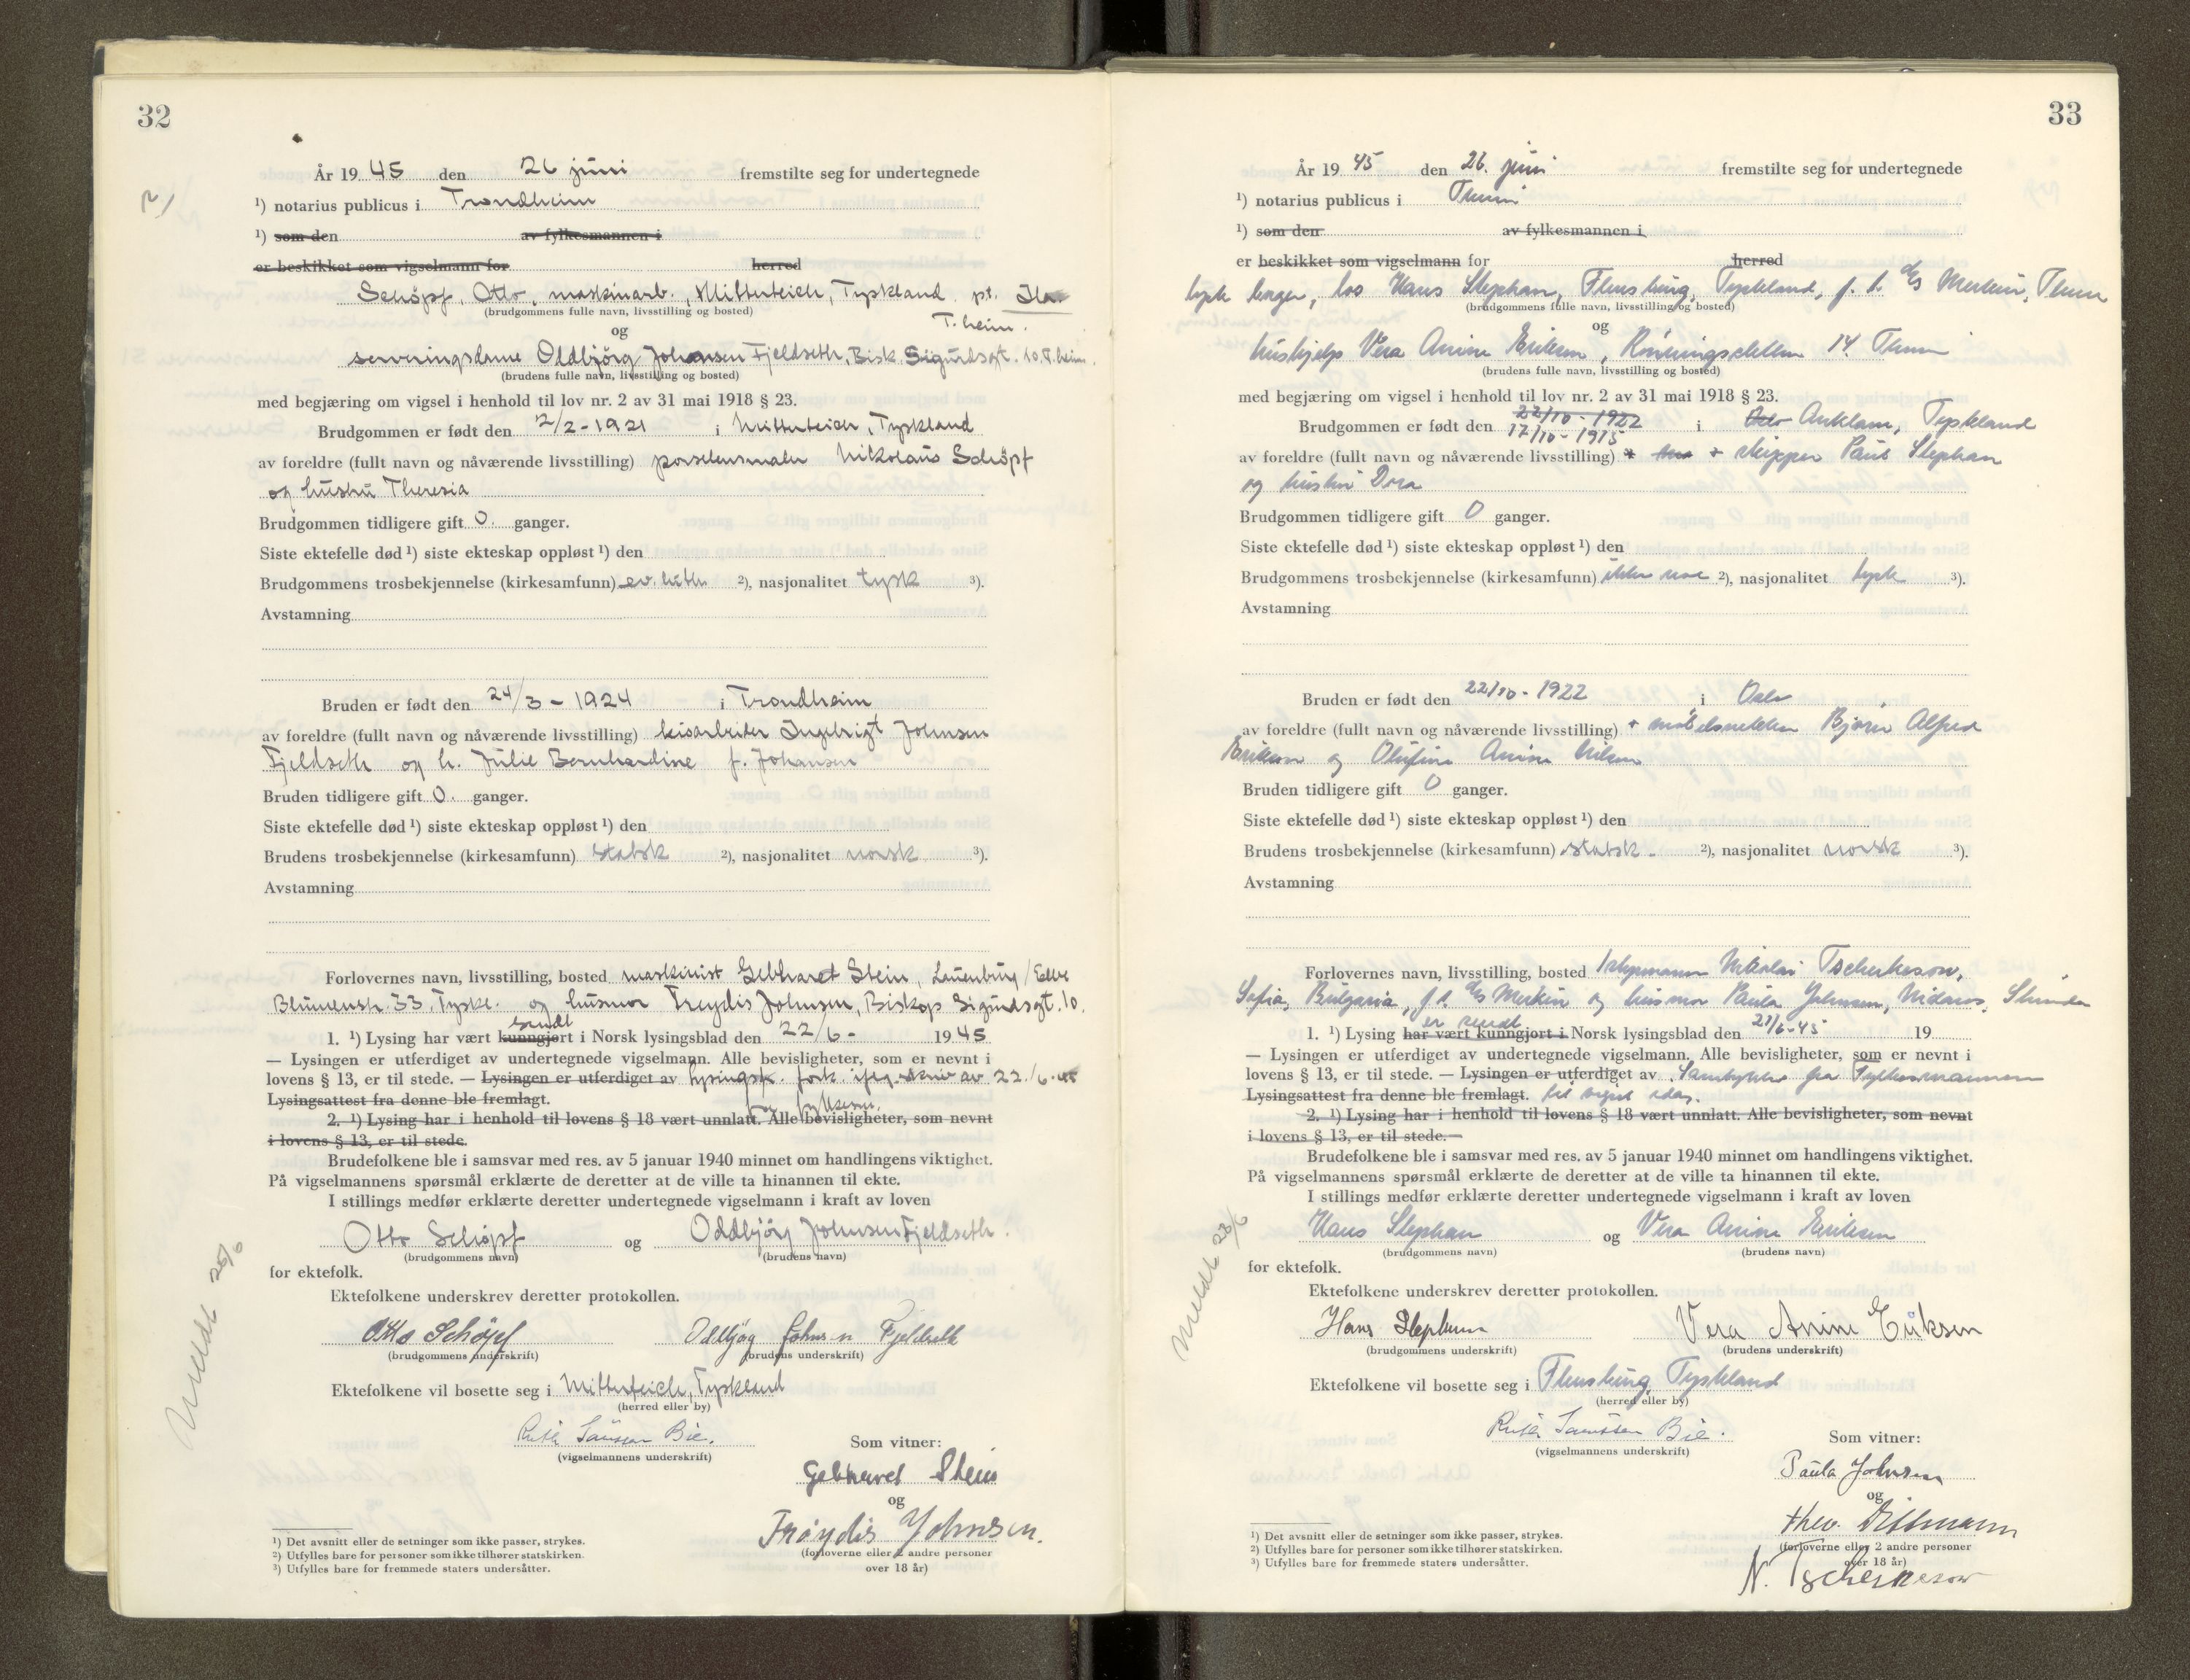 32
År 19 45 den 26 juni fremstilte seg for undertegnede
2/
¹) notarius publicus i Trondheim
¹) som den av fylkesmannen i
er beskikket som vigselmann for herred
Schöpf, Otto, maskinarb., Mitterteich, Tyskland p.t. Ila
(brudgommens fulle navn, livsstilling og bosted)
T.heim.
og
serveringsdame Oddbjörg Johansen Fjeldseth, Bisk. Sigurdsgt. 10. T.heim.
(brudens fulle navn, livsstilling og bosted)
med begjæring om vigsel i henhold til lov nr. 2 av 31 mai 1918 § 23.
Brudgommen er født den 2/2-1921 i Mitterteich, Tyskland
av foreldre (fullt navn og nåværende livsstilling) porselensmaler Nikolaus Schöpf
og hustru Theresia
Brudgommen tidligere gift 0. ganger.
Siste ektefelle død ¹) siste ekteskap oppløst ¹) den
Brudgommens trosbekjennelse (kirkesamfunn) ev. luth. ²), nasjonalitet tysk ³).
Avstamning
Bruden er født den 24/3 - 1924 i Trondheim
av foreldre (fullt navn og nåværende livsstilling) kisarbeider Ingebrigt Johnsen
Fjeldseth og h. Julie Bernhardine f. Johansen
Bruden tidligere gift 0. ganger.
Siste ektefelle død ¹) siste ekteskap oppløst ¹) den
Brudens trosbekjennelse (kirkesamfunn) statsk ²), nasjonalitet norsk ³).
Avstamning
Forlovernes navn, livsstilling, bosted maskinist Gebharet Stein, Lauenburg/Elbe
Blumenstr. 33, Tyskl. og husmor Frøydis Johnsen, Biskop Sigurdsgt. 10.
sendt
1. ¹) Lysing har vært kunngjort i Norsk lysingsblad den 22/6 - 19 45
— Lysingen er utferdiget av undertegnede vigselmann. Alle bevisligheter, som er nevnt i
lovens § 13, er til stede. — Lysingen er utferdiget av lysingsf. fork. ifeg. skriv av 22./6.45
Lysingsattest fra denne ble fremlagt. fra fylkesm.
2. ¹) Lysing har i henhold til lovens § 18 vært unnlatt. Alle bevisligheter, som nevnt
i lovens § 13, er til stede.
Brudefolkene ble i samsvar med res. av 5 januar 1940 minnet om handlingens viktighet.
På vigselmannens spørsmål erklærte de deretter at de ville ta hinannen til ekte.
I stillings medfør erklærte deretter undertegnede vigselmann i kraft av loven
Otto Schöpf og Oddbjörg Johnsen Fjeldseth.
(brudgommens navn) (brudens navn)
for ektefolk.
Ektefolkene underskrev deretter protokollen.
Otto Schöpf Oddbjøg Johnsen Fjeldseth
(brudgommens underskrift) (brudens underskrift)
Ektefolkene vil bosette seg i Mitterteich, Tyskland
(herred eller by)
Meldt 28/6
Ruth Saussen Bie.
(vigselmannens underskrift)
Som vitner:
Gebharet Stein
og
Frøydis Johnsen.
(forloverne eller 2 andre personer
over 18 år)
¹) Det avsnitt eller de setninger som ikke passer, strykes.
²) Utfylles bare for personer som ikke tilhører statskirken.
³) Utfylles bare for fremmede staters undersåtter.
33
År 19 45 den 26. juni fremstilte seg for undertegnede
¹) notarius publicus i Theim
¹) som den av fylkesmannen i
er beskikket som vigselmann for herred
tysk borger, los Hans Stephan, Flensburg, Tyskland, f. t. d/s Merkur, Theim
(brudgommens fulle navn, livsstilling og bosted)
og
hushjelp Vera Anine Eriksen, Rönningsletten 14. Theim
(brudens fulle navn, livsstilling og bosted)
med begjæring om vigsel i henhold til lov nr. 2 av 31 mai 1918 § 23.
22/10 - 1922
Brudgommen er født den 17/10 - 1915 i Oslo Anklam, Tyskland
av foreldre (fullt navn og nåværende livsstilling) + skipper Paul Stephan
og hustru Dora
Brudgommen tidligere gift 0 ganger.
Siste ektefelle død ¹) siste ekteskap oppløst ¹) den
Brudgommens trosbekjennelse (kirkesamfunn) ikke noe ²), nasjonalitet tysk ³).
Avstamning
Bruden er født den 22/10 - 1922 i Oslo
av foreldre (fullt navn og nåværende livsstilling) + möbelsnekker Bjarne Alfred
Eriksen og Olufine Anine Nilsen
Bruden tidligere gift 0 ganger.
Siste ektefelle død ¹) siste ekteskap oppløst ¹) den
Brudens trosbekjennelse (kirkesamfunn) statsk. ²), nasjonalitet norsk ³).
Avstamning
Forlovernes navn, livsstilling, bosted Nikolai Tscherkesow,
Sofia, Bulgaria, f.t. d/s Merkur og husmor Paula Johnsen, Nidaros, Strinda
er sendt
1. ¹) Lysing har vært kunngjort i Norsk lysingsblad den 21/6-45 19
— Lysingen er utferdiget av undertegnede vigselmann. Alle bevisligheter, som er nevnt i
lovens § 13, er til stede. — Lysingen er utferdiget av Samtykke fra Fylkesmannen
Lysingsattest fra denne ble fremlagt. til vigsel idag.
2. ¹) Lysing har i henhold til lovens § 18 vært unnlatt. Alle bevisligheter, som nevnt
i lovens § 13, er til stede.
Brudefolkene ble i samsvar med res. av 5 januar 1940 minnet om handlingens viktighet.
På vigselmannens spørsmål erklærte de deretter at de ville ta hinannen til ekte.
I stillings medfør erklærte deretter undertegnede vigselmann i kraft av loven
Hans Stephan og Vera Anine Eriksen
(brudgommens navn) (brudens navn)
for ektefolk.
Ektefolkene underskrev deretter protokollen.
Hans Stephan Vera Anine Eriksen
(brudgommens underskrift) (brudens underskrift)
Ektefolkene vil bosette seg i Flensburg, Tyskland
(herred eller by)
Meldt 28/6
Ruth Saussen Bie.
(vigselmannens underskrift)
Som vitner:
Paula Johnsen
og
Theo. Dittmann
(forloverne eller 2 andre personer
over 18 år)
N. Tscherkesow
¹) Det avsnitt eller de setninger som ikke passer, strykes.
²) Utfylles bare for personer som ikke tilhører statskirken.
³) Utfylles bare for fremmede staters undersåtter.